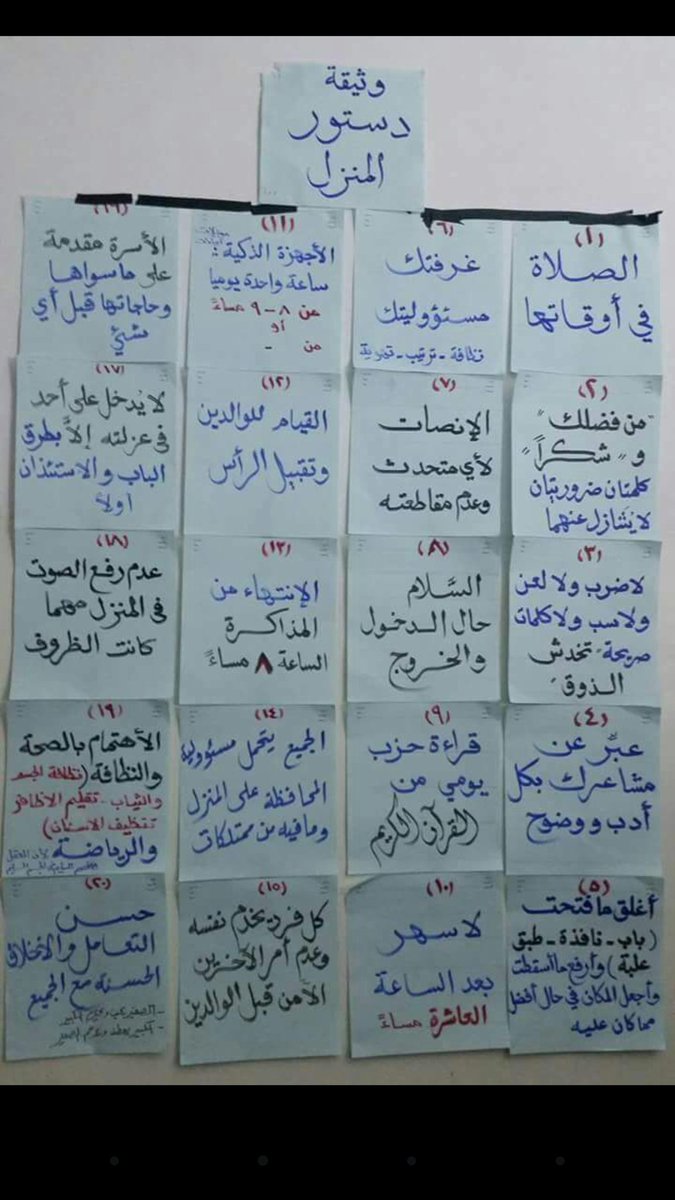 وثيقة
دستور
المنزل
(١)
الصلاة
في أوقاتها
(٢)
"من فضلك"
و "شكراً"
كلمتان ضروريتان
لا يُتنازل عنهما
(٣)
لا ضرب ولا لعن
ولا سب ولا كلمات
صريحة تخدش
الذوق
(٤)
عبِّر عن
مشاعرك بكل
أدب ووضوح
(٥)
أغلق ما فتحت
(باب - نافذة - طبق
علبة) وأرفع ما أسقطت
وأجعل المكان في حال أفضل
مما كان عليه
(٦)
غرفتك
مسئووليتك
نظافة - ترتيب - تهوية
(٧)
الإنصات
لأي متحدث
وعدم مقاطعته
(٨)
السَّلام
حال الدخول
والخروج
(٩)
قراءة حزب
يومي من
القرآن الكريم
(١٠)
لا سهر
بعد الساعة
العاشرة مساءً
(١١)
الأجهزة الذكية:
ساعة واحدة يوميا
من ٨ - ٩ مساءً
أو
من -
(١٢)
القيام للوالدين
وتقبيل الرأس
(١٣)
الإنتهاء من
المذاكرة
الساعة ٨ مساءً
(١٤)
الجميع يتحمل مسئوولية
المحافظة على المنزل
ومافيه من ممتلكات
(١٥)
كل فرد يخدم نفسه
وعدم أمر الآخرين
الأمن قبل الوالدين
(١٦)
الأسرة مقدمة
على ماسواها
وحاجاتها قبل أي
شئ
(١٧)
لا يُدخل على أحد
في عزلته إلاَّ بطرق
الباب والاستئذان
أولاً
(١٨)
عدم رفع الصوت
في المنزل مهما
كانت الظروف
(١٩)
الأهتمام بالصحة
والنظافة (نظافة الجسم
والثياب - تقليم الأظافر
تنظيف الأسنان)
والرياضة لأن العقل
السليم في الجسم السليم
(٢٠)
حسن
التعامل والأخلاق
الحسنة مع الجميع
- الصغير يحب ويحترم الكبير
- الكبير يعطف ويرحم الصغير